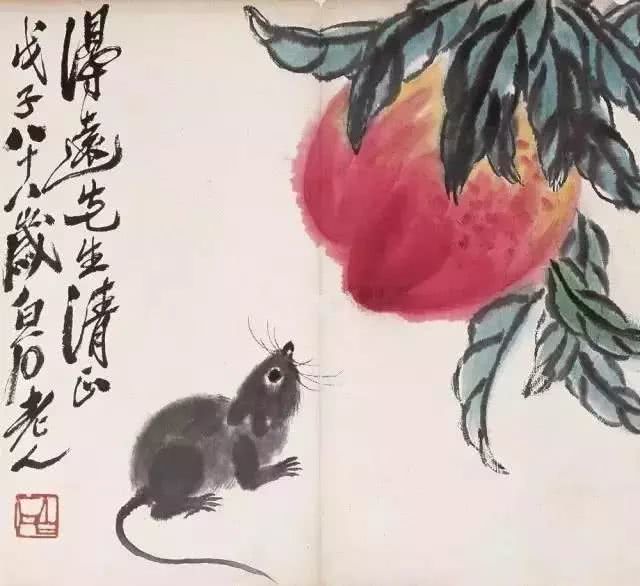 得遠先生清正
戊子八十八歲白石老人
白石